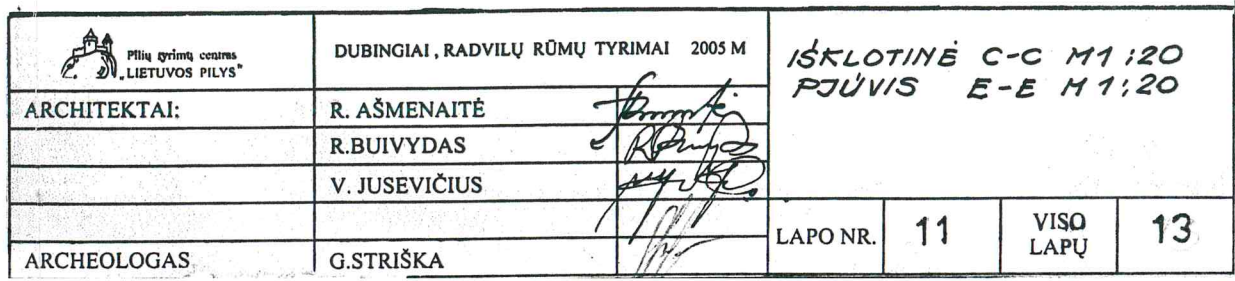 Pilių tyrimų centras
„LIETUVOS PILYS"
DUBINGIAI, RADVILŲ RŪMŲ TYRIMAI 2005 M
IŠKLOTINĖ C-C M1:20
PJŪVIS E-E M1:20
ARCHITEKTAI:
R. AŠMENAITĖ
R.BUIVYDAS
V. JUSEVIČIUS
ARCHEOLOGAS
G.STRIŠKA
LAPO NR.
11
VISO
LAPŲ
13